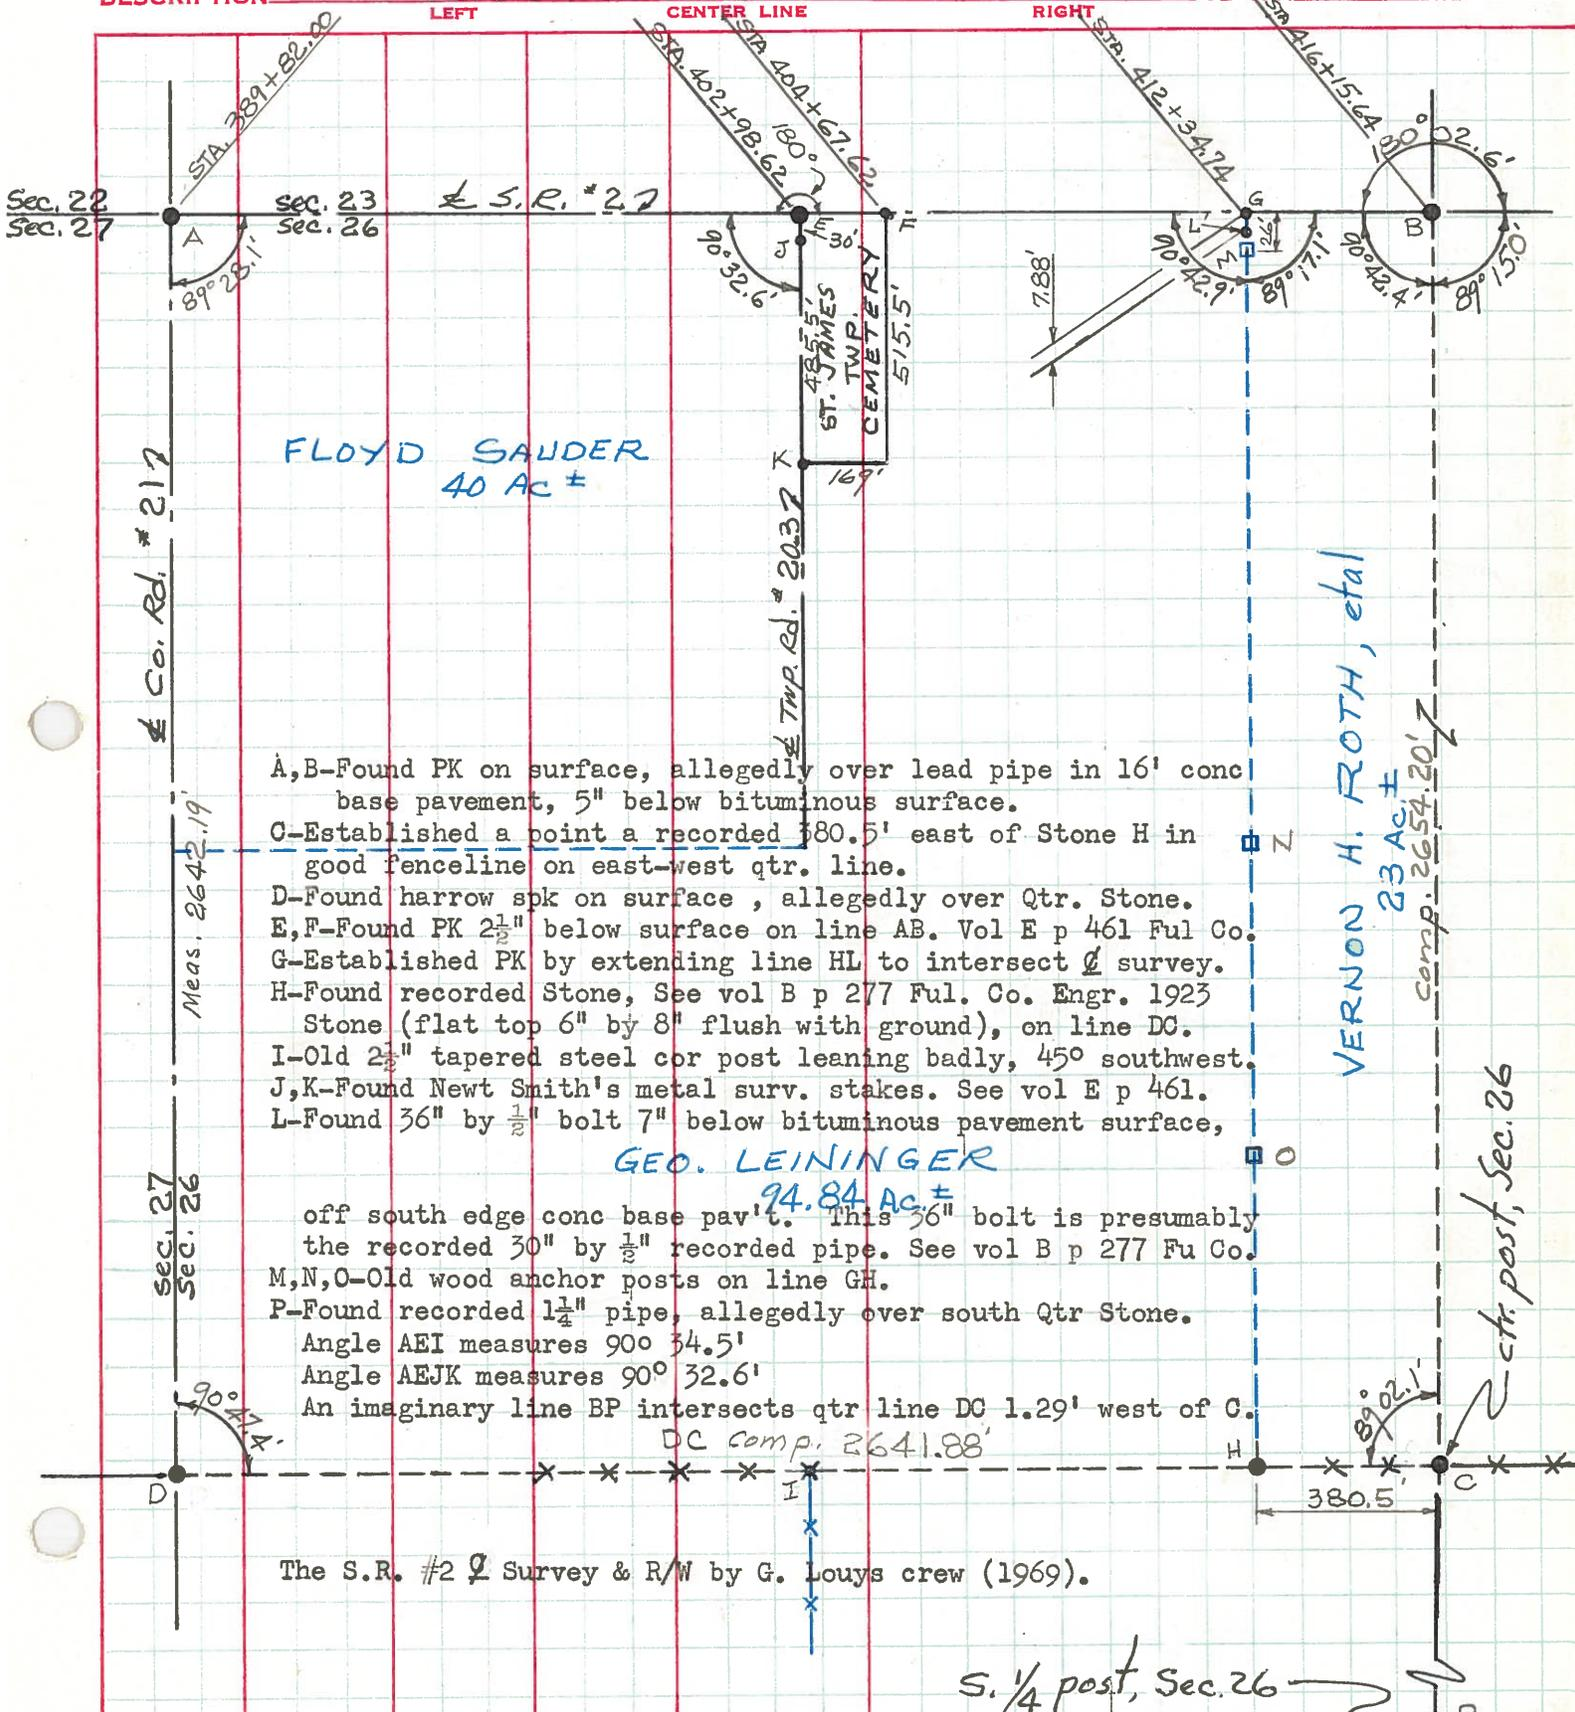 LEFT CENTER LINE RIGHT
STA. 389+82.00
STA. 402+98.62
STA 404+67.62
STA. 412+34.74
STA 416+15.64
180°
180° 02.6'
Sec. 22
Sec. 27
Sec. 23
Sec. 26
℄ S.R. #2
A
E
F
G
B
J
30'
L
M
26'
89° 28.1'
90° 32.6'
90° 42.9'
89° 17.1'
90° 42.4'
89° 15.0'
7.88'
485.5'
ST. JAMES
TWP.
CEMETERY
515.5'
K
169'
FLOYD SAUDER
40 Ac ±
℄ Co. Rd. #21
℄ Twp. Rd. # 203
VERNON H. ROTH, etal
23 Ac. ±
comp. 2654.20'
Meas. 2642.19'
N
O
A,B-Found PK on surface, allegedly over lead pipe in 16' conc
base pavement, 5" below bituminous surface.
C-Established a point a recorded 380.5' east of Stone H in
good fenceline on east-west qtr. line.
D-Found harrow spk on surface , allegedly over Qtr. Stone.
E,F-Found PK 2½" below surface on line AB. Vol E p 461 Ful Co.
G-Established PK by extending line HL to intersect ℄ survey.
H-Found recorded Stone, See vol B p 277 Ful. Co. Engr. 1923
Stone (flat top 6" by 8" flush with ground), on line DC.
I-Old 2½" tapered steel cor post leaning badly, 45° southwest.
J,K-Found Newt Smith's metal surv. stakes. See vol E p 461.
L-Found 36" by ½" bolt 7" below bituminous pavement surface,
GEO. LEININGER
94.84 Ac. ±
off south edge conc base pav't. This 36" bolt is presumably
the recorded 30" by ½" recorded pipe. See vol B p 277 Fu Co.
M,N,O-Old wood anchor posts on line GH.
P-Found recorded 1¼" pipe, allegedly over south Qtr Stone.
Angle AEI measures 90° 34.5'
Angle AEJK measures 90° 32.6'
An imaginary line BP intersects qtr line DC 1.29' west of C.
Sec. 27
Sec. 26
ctr. post, Sec. 26
90° 47.4'
89° 02.1'
DC comp. 2641.88'
D
I
H
C
380.5'
The S.R. #2 ℄ Survey & R/W by G. Louys crew (1969).
S. 1/4 post, Sec. 26